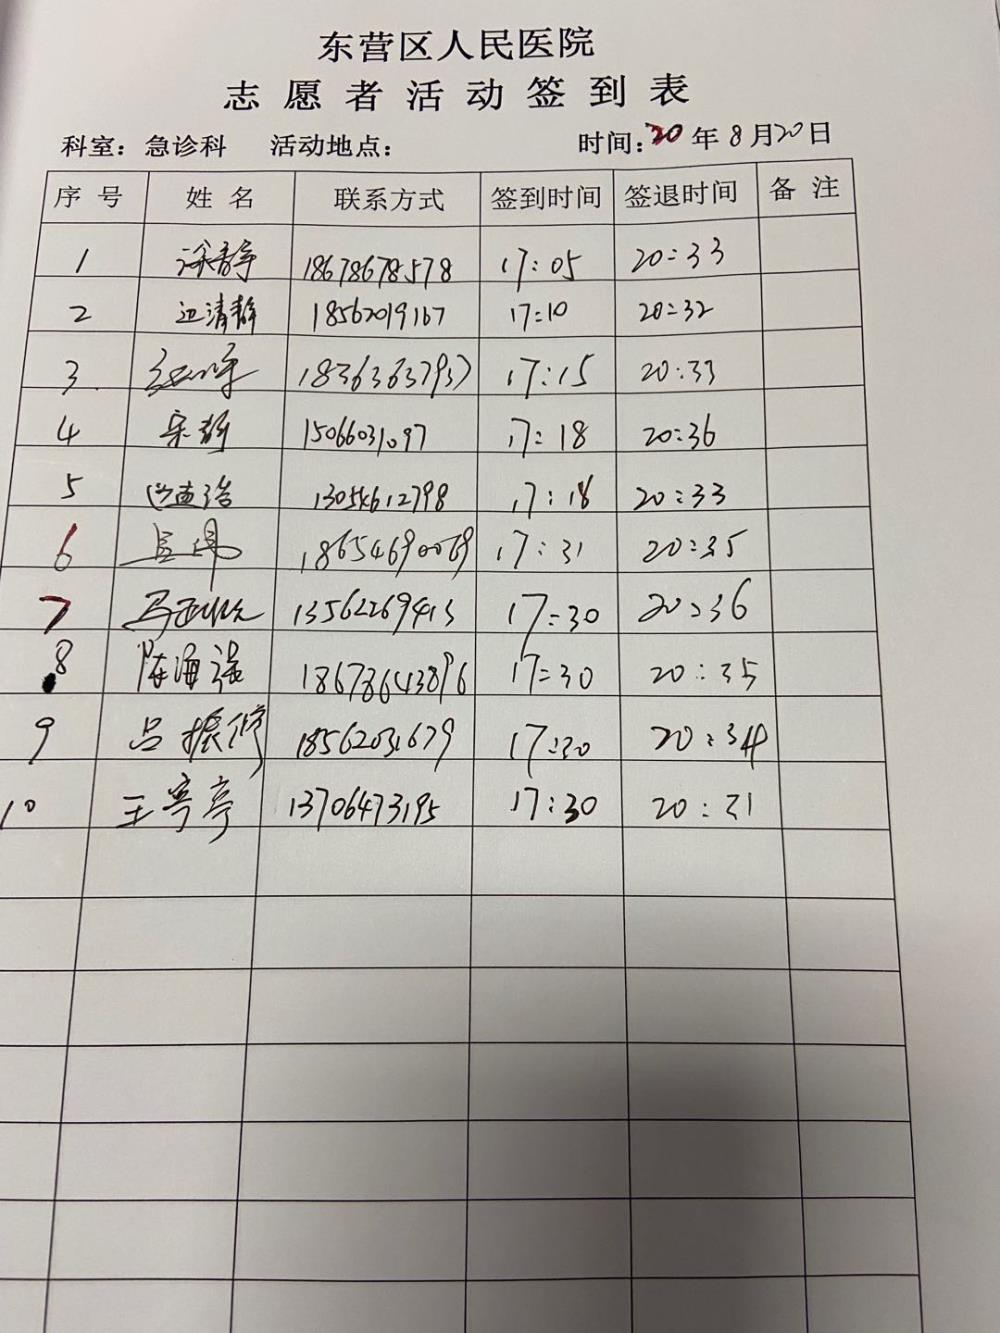 东营区人民医院
志愿者活动签到表
科室：急诊科 活动地点： 时间：20年8月20日
序号 姓名 联系方式 签到时间 签退时间 备注
1 徐静 18678678578 17:05 20:33
2 边清静 18562019167 17:10 20:32
3 18363637937 17:15 20:33
4 宋静 15066031097 17:18 20:36
5 13054612798 17:18 20:33
6 18654690069 17:31 20:35
7 13562269413 17:30 20:36
8 陈海强 18678643896 17:30 20:35
9 吕振修 18562031679 17:30 20:34
10 王亭亭 13706473195 17:30 20:31